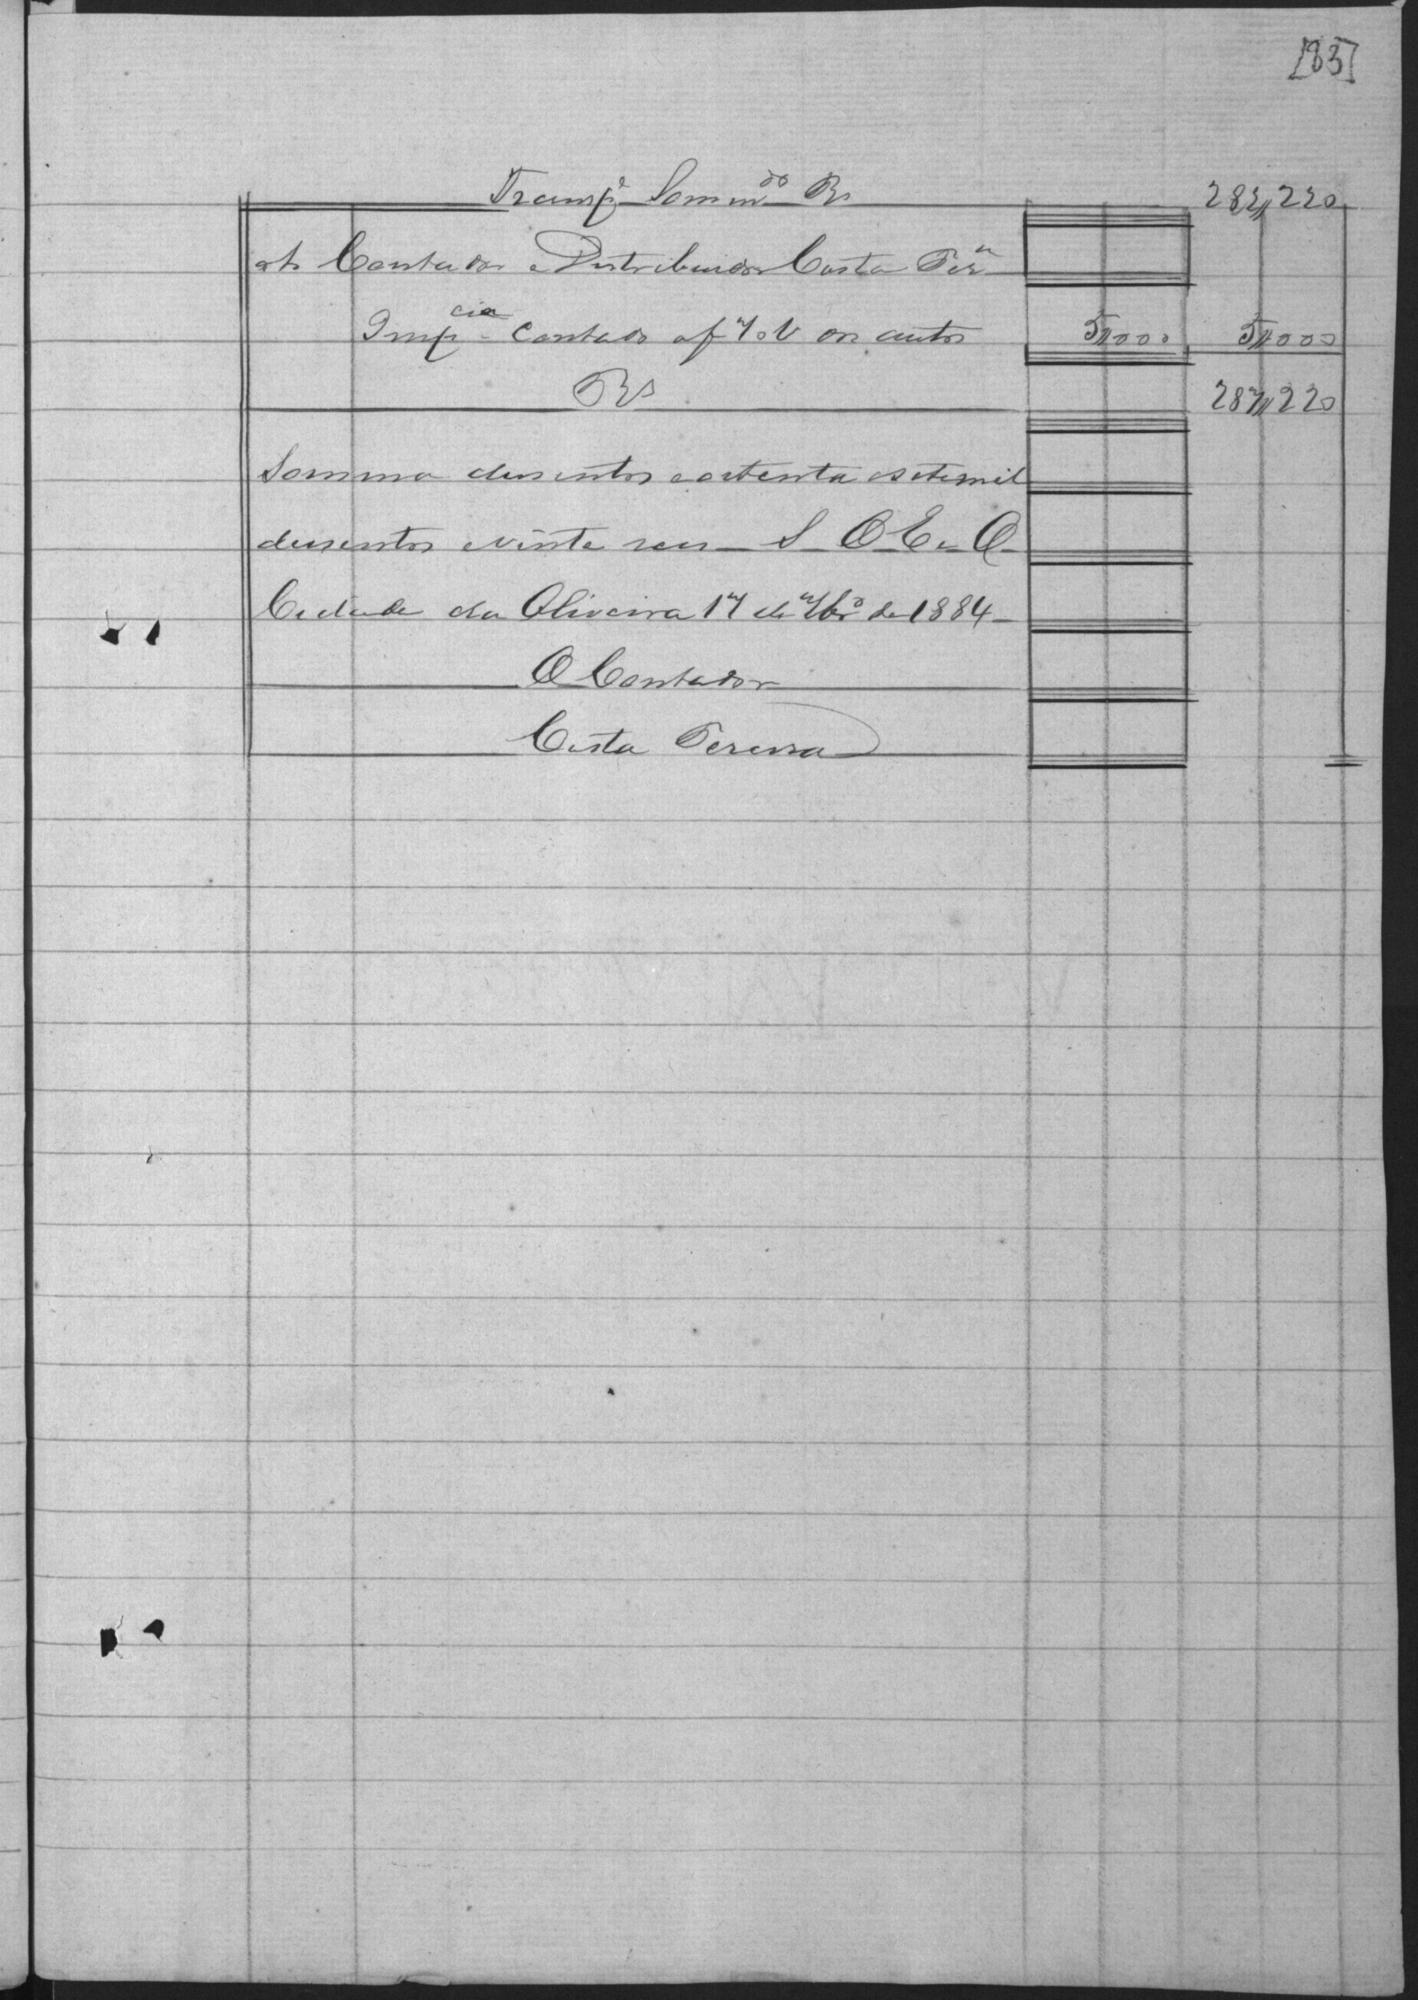 [83]
Transp.e Somm.do Rs 282,,220
Ao Contador e Distribuidor Costa Per.a
Imp.cia Contado af 7. V os autos 5,,000 5,,000
Rs 287,,220
Somma dusentos e oitenta e sete mil
dusentos e vinte reis – S – O – E – O –
Cidade da Oliveira 17 de 7br.o de 1884 –
O Contador
Costa Pereira